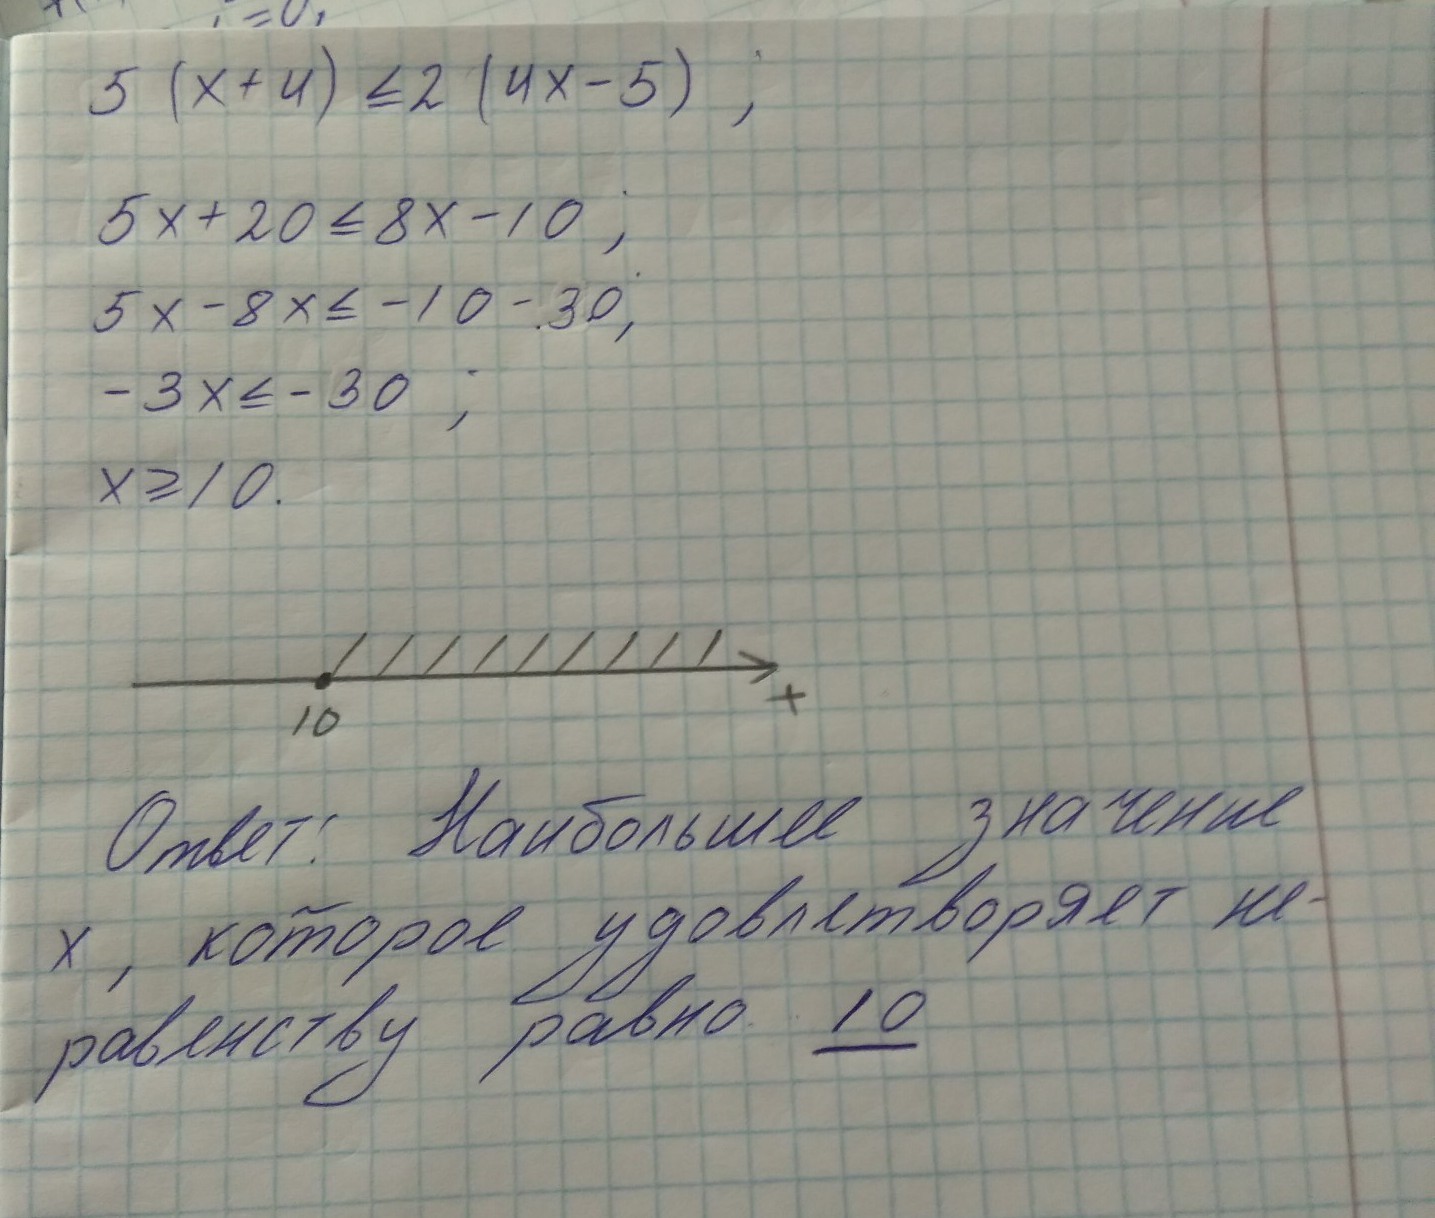 =0,
5 (x+4) ≤2 (4x-5) ;
5x+20≤8x-10 ;
5x-8x≤-10-30;
-3x≤-30 ;
x≥10.
10
x
Ответ: Наибольшее значение
x, которое удовлетворяет не-
равенству равно 10